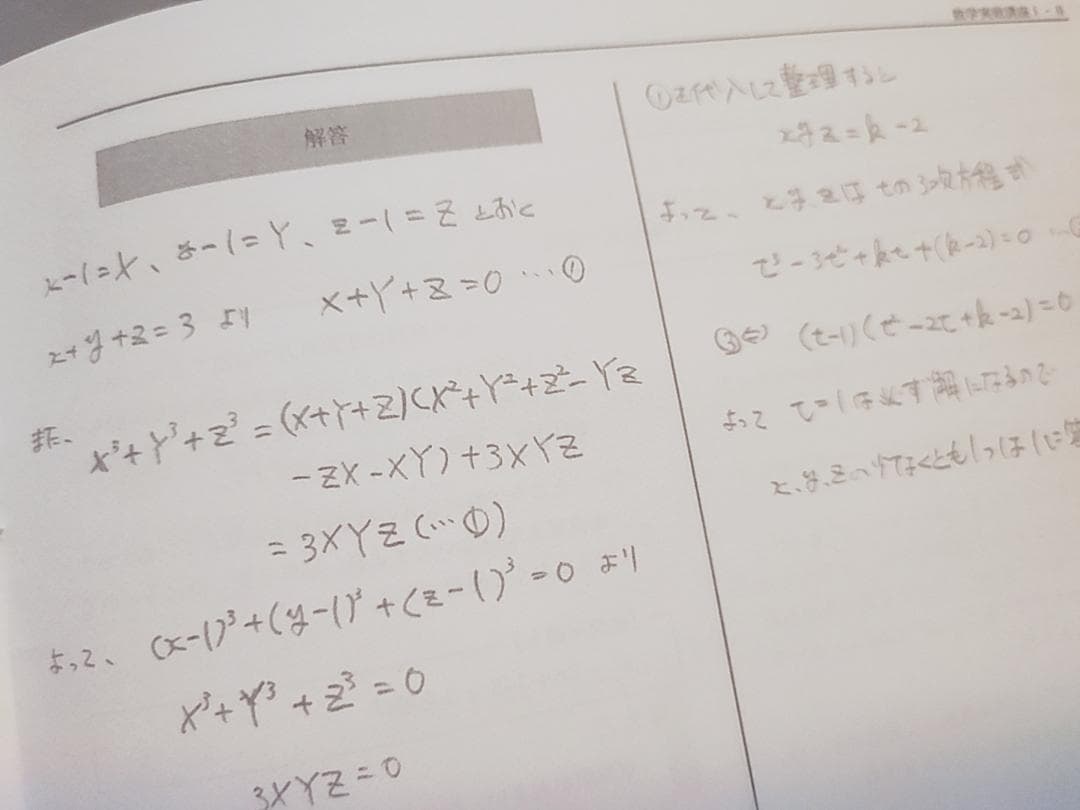 解答
x-1=X、y-1=Y、z-1=Z とおく
x+y+z=3 より X+Y+Z=0 …①
また、X³+Y³+Z³=(X+Y+Z)(X²+Y²+Z²-YZ
-ZX-XY)+3XYZ
=3XYZ (…①)
よって、(x-1)³+(y-1)³+(z-1)³=0 より
X³+Y³+Z³=0
3XYZ=0
①を代入して整理すると
xyz=k-2
よって、x,y,zはtの3次方程式
t³-3t²+kt+(k-2)=0 …
③⇔ (t-1)(t²-2t+k-2)=0
よって t=1は必ず解になるので
x,y,zの少なくとも1つは1に等